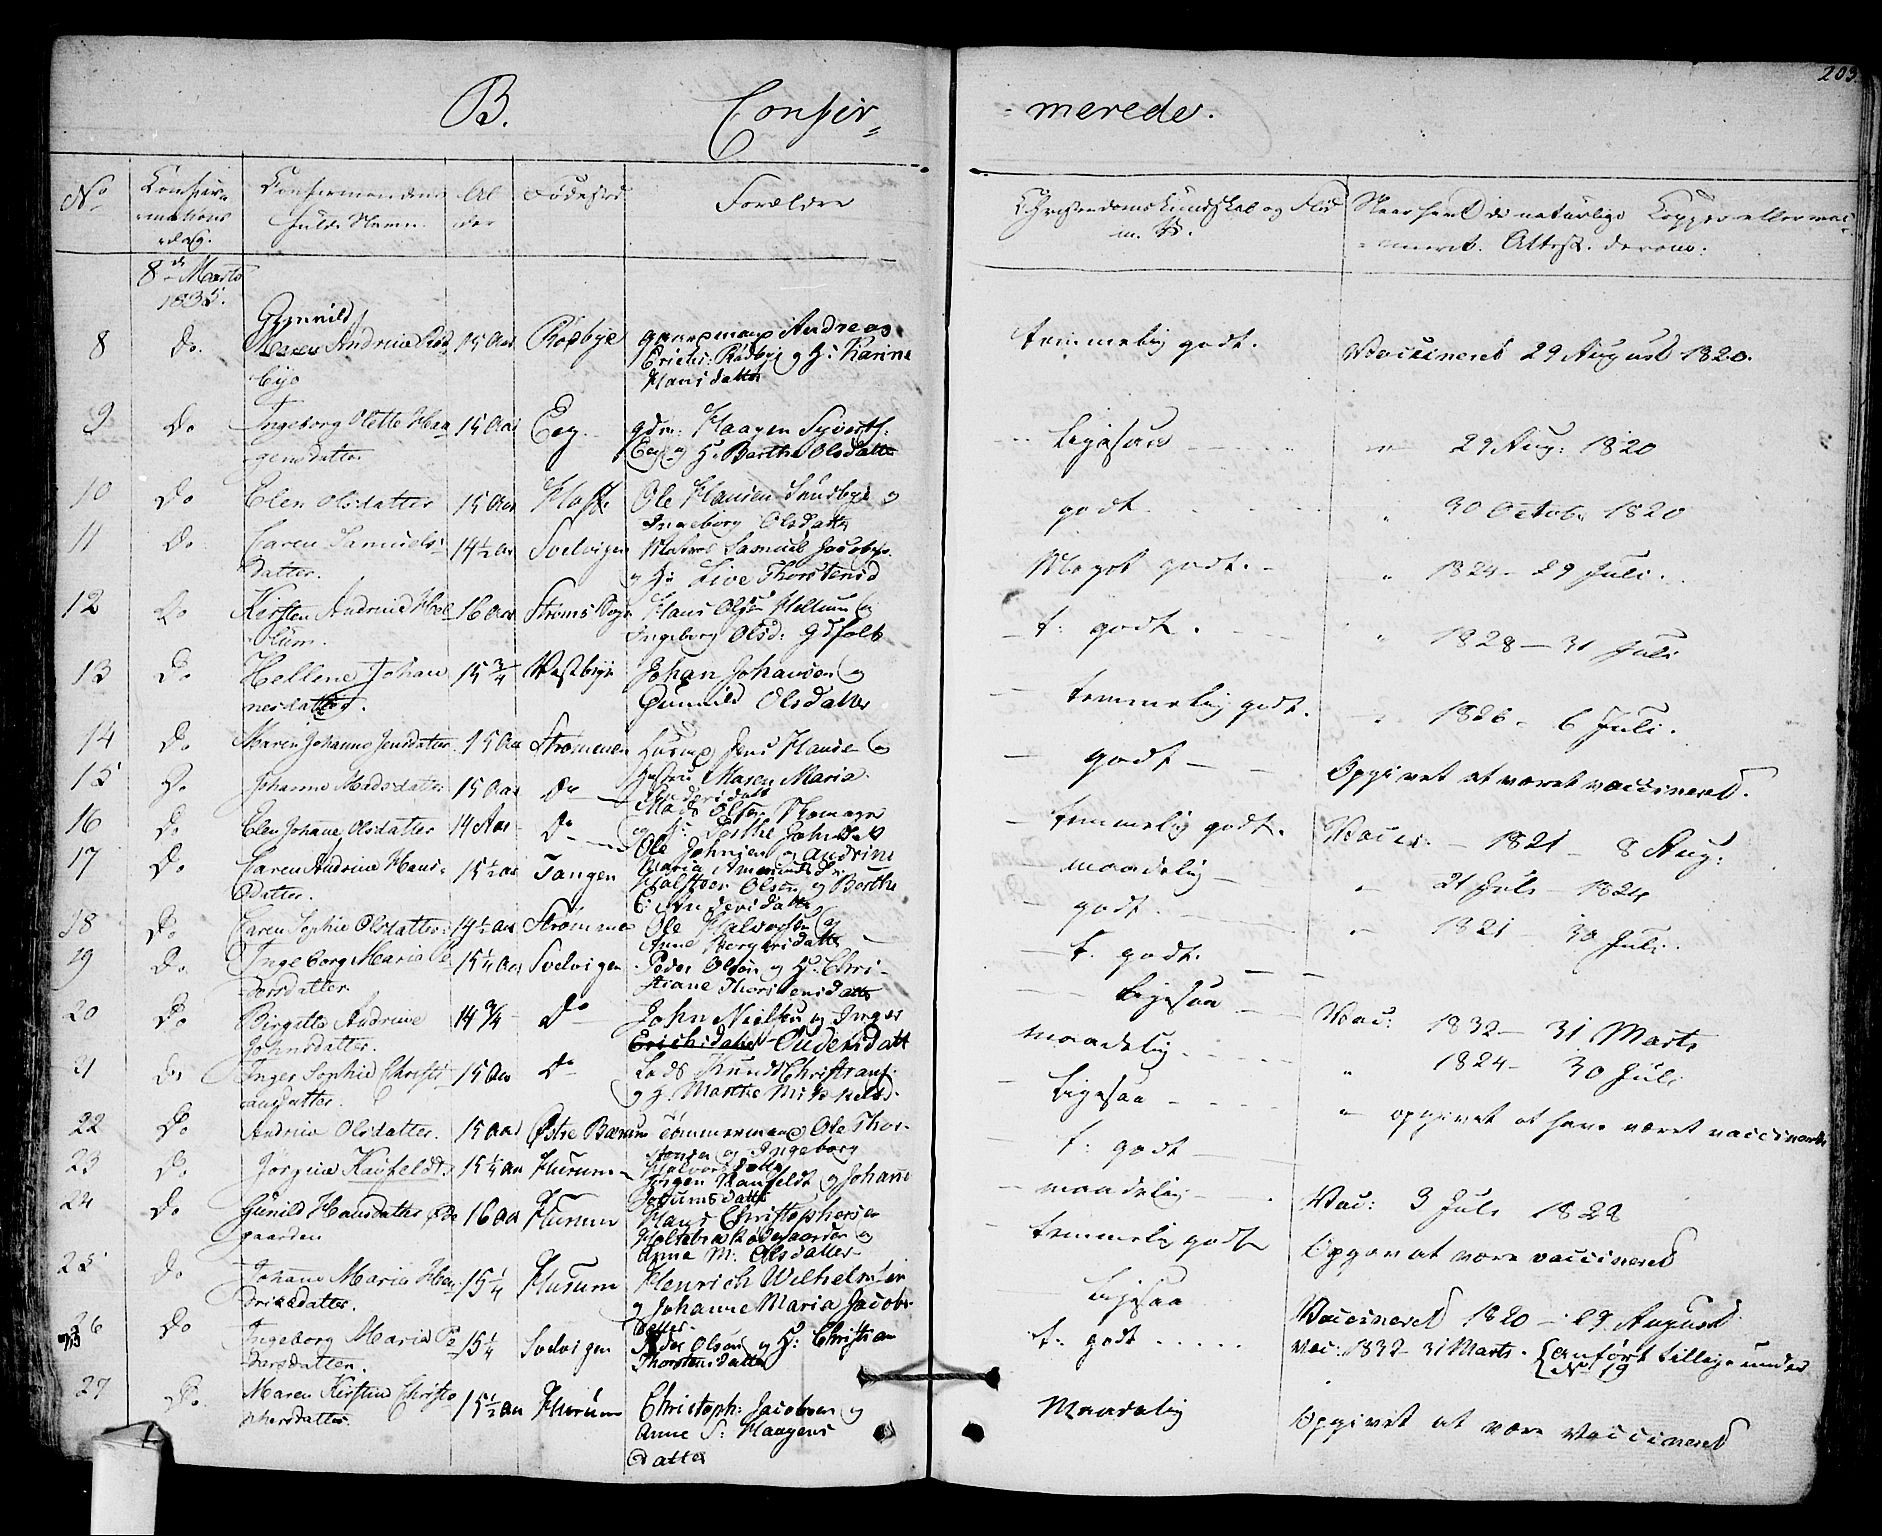 203.
B. Confir=
=merede.
No
Confir=
mations
dag.
Confirmandens
fulde Navn.
Al
der
Fødested
Forældre
Christendomskundskab og Flid
m. V.
Om havt de naturlige Kopper eller vac=
cineret. Attest. derom.
8de Marts
1835.
8 Do. Gunnild
Maren Andrine Rød
bye 15 Aar Rødbye Andreas
Erichs: Rødbye og H: Karine
Hansdatter temmelig godt. Vaccineret 29 August 1820.
9 Do Ingeborg Olette Haa
gensdatter 15 Aar Eeg gdm: Haagen Syverts:
Eeg og H. Berthe Olsdatter ligesaa " 29 Aug: 1820
10 Do Elen Olsdatter 15 Aar Ole Hansen Sundbye og
Ingeborg Olsdatter godt " 30 October 1820
11 Do Caren Samuels
datter. 14½ Aar Svelvigen Matros Samuel Jacobs:
og H: Live Thorstensd Meget godt. " 1824 - 29 Juli.
12 Do Kirsten Andrine Hel
lum. 16 Aar Hans Olsen Hellum og
Ingeborg Olsd: Gdfolk t: godt. " 1828 - 31 Juli
13 Do Hellene Johan
nesdatter. 15 3/4 Vestbye Johan Johansen og
Gunnild Olsdatter temmelig godt. " 1826 - 6 Juli.
14 Do Maren Johanne Jensdatter 15 Aar Strømmen Husmd Jens Hansen og
Hustru Maren Maria
Pedersdatt godt Opgivet at været vaccineret.
15 Do Johanne Madsdatter 15 Aar Do Mads Olsen
og H: Berthe temmelig godt. Vacci: 1821 - 8 Aug:
16 Do Elen Johanne Olsdatter 14 Aar Do Ole Johnsen og Andrine
Maria Amundsd: maadelig " 21 Juli 1824
17 Do Caren Andrine Hans
Datter. 15½ Aar Tangen Olsen og Berthe
C: Andersdatter godt. " 1821 30 Juli.
18 Do Caren Sophie Olsdatter 14½ Aar Strømmen Ole Halvorsen og
Anne Bergersdatter t. godt.
19 Do Ingeborg Maria Pe
dersdatter 15¼ Aar Svelvigen Peder Olsen og H: Chri-
stiane Thorstensdatter ligesaa Vac: 1832 - 31 Marts
20 Do Birgitte Andrine
Johnsdatter. 14 3/4 Do John Nielsen og Inger
Erichsdatter Gudensdatt maadelig. " 1824 - 30 Juli
21 Do Inger Sophie Christi
ansdatter. 15 Aar Do Lods Knud Christians:
og H. Marthe Mikkelsd. ligesaa " opgivet at have været vaccineret
22 Do Andrine Olsdatter. 15 Aar Østre Bærum Tømmermand Ole Thor-
stensen og Ingeborg
Halvorsdatter t: godt
23 Do Jørgine Kaufeldt 15¼ Aar Hurum Jørgen Kaufeldt og Johanne
maadelig Vac: 3 Juli 1828
24 Do Gunild Hansdatter Øde
gaarden 16 Aar Hurum Hans Christophersen
Anne M: Olsdatter temmelig godt Opgiven at være vaccineret
25 Do Johanne Maria Hen
driksdatter 15¼ Hurum Henrich Wilhelmsen
og Johanne Maria Jacobs
datter ligesaa Vaccineret 1820 - 29 August
26 Do Ingeborg Maria Pe
dersdatter. 15¼ Svelvigen Peder Olsen og H: Christian
Thorstensdatter t: godt Vac: 1832 31 Marts. (anført tillige under
No 19
27 Do Maren Kirstine Christo
phersdatter 15½ Aar Hurum Christoph: Jacobsen og
Anne S: Haagens
Datter Maadelig Opgivet at være Vaccineret